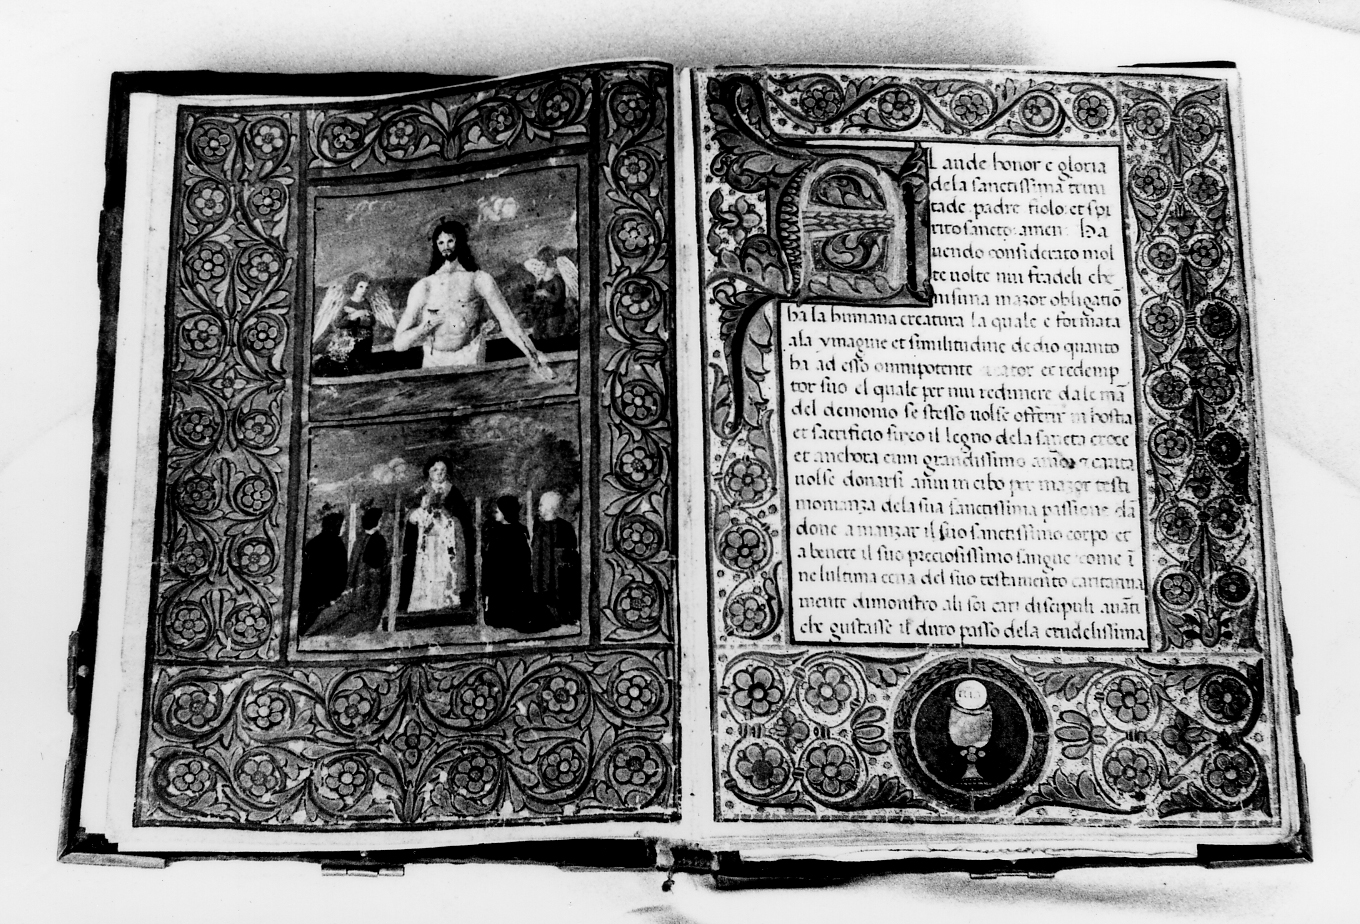 Laude honor e gloria
dela sanctissima trini
tade padre fiolo et spi
rito sancto: amen: Ha
uendo considerato mol
te uolte nui fradeli che
nisima mazor obligatio
ha la humana creatura la quale e formata
ala ymagine et similitudine de dio quanto
ha ad esso omnipotente et redemp
tor suo el quale per nui redimere dale mā
del demonio se stesso uolse offerir in hostia
et sacrificio suso il legno dela sancta croce
et anchora cum grandissimo carita
uolse donarsi a nui in cibo per mazor testi
monianza dela sua sanctissima passione
done a manzar il suo sanctissimo corpo et
a beuere il suo preciosissimo sangue come ī
ne lultima cena del suo testamento caritatiua
mente dimonstro ali soi cari discipuli auāti
che gustasse il duro passo dela crudelissima